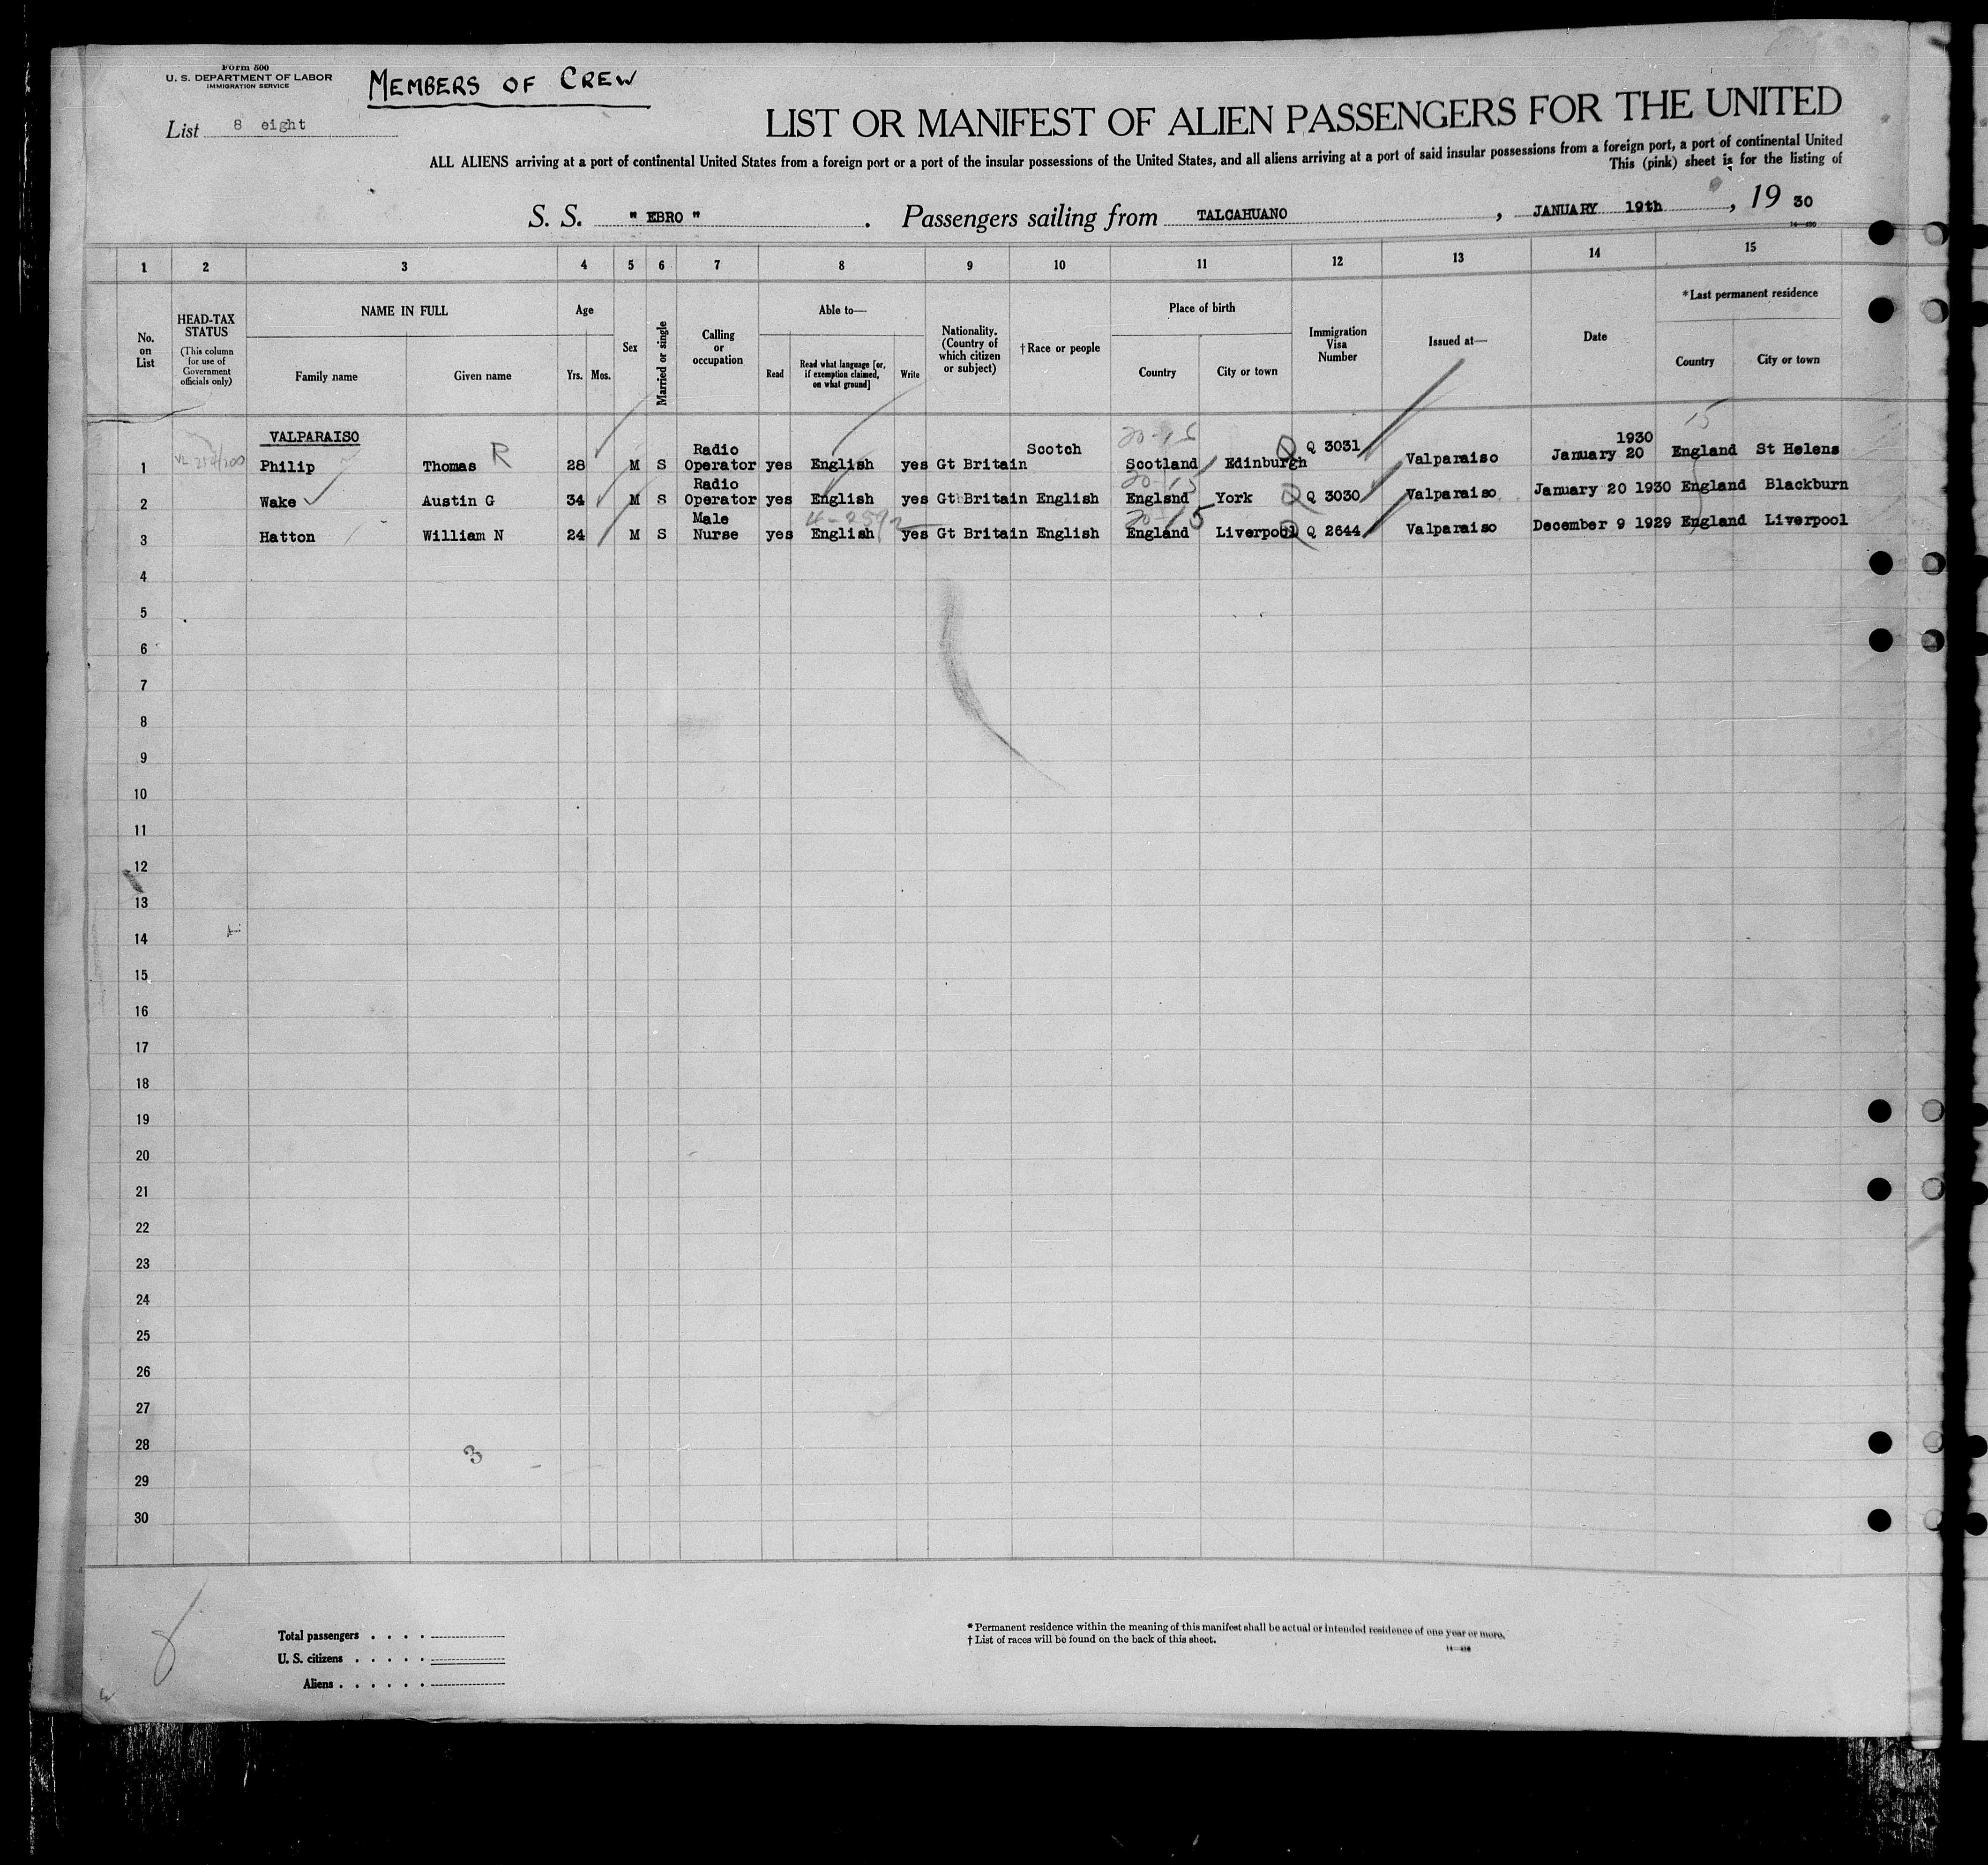 Form 500
U. S. DEPARTMENT OF LABOR
IMMIGRATION SERVICE
MEMBERS OF CREW
List 8 eight
LIST OR MANIFEST OF ALIEN PASSENGERS FOR THE UNITED
ALL ALIENS arriving at a port of continental United States from a foreign port or a port of the insular possessions of the United States, and all aliens arriving at a port of said insular possessions from a foreign port, a port of continental United
This (pink) sheet is for the listing of
S. S. " EBRO " . Passengers sailing from TALCAHUANO , JANUARY 19th , 19 30
1 2 3 4 5 6 7 8 9 10 11 12 13 14 15
No. on List
HEAD-TAX STATUS
(This column for use of Government officials only)
NAME IN FULL
Family name Given name
Age
Yrs. Mos.
Sex
Married or single
Calling or occupation
Able to—
Read
Read what language [or, if exemption claimed, on what ground]
Write
Nationality. (Country of which citizen or subject)
†Race or people
Place of birth
Country City or town
Immigration Visa Number
Issued at—
Date
*Last permanent residence
Country City or town
15
VALPARAISO
1 Philip Thomas R 28 M S Radio Operator yes English yes Gt Britain Scotch Scotland Edinburgh Q 3031 Valparaiso January 20 1930 England St Helens
2 Wake Austin G 34 M S Radio Operator yes English yes Gt Britain English Englsnd York Q 3030 Valparaiso January 20 1930 England Blackburn
3 Hatton William N 24 M S Male Nurse yes English yes Gt Britain English England Liverpool Q 2644 Valparaiso December 9 1929 England Liverpool
4
5
6
7
8
9
10
11
12
13
14
15
16
17
18
19
20
21
22
23
24
25
26
27
28
3
29
30
8
Total passengers . . . .
U. S. citizens . . . . .
Aliens . . . . . .
* Permanent residence within the meaning of this manifest shall be actual or intended residence of one year or more.
† List of races will be found on the back of this sheet.